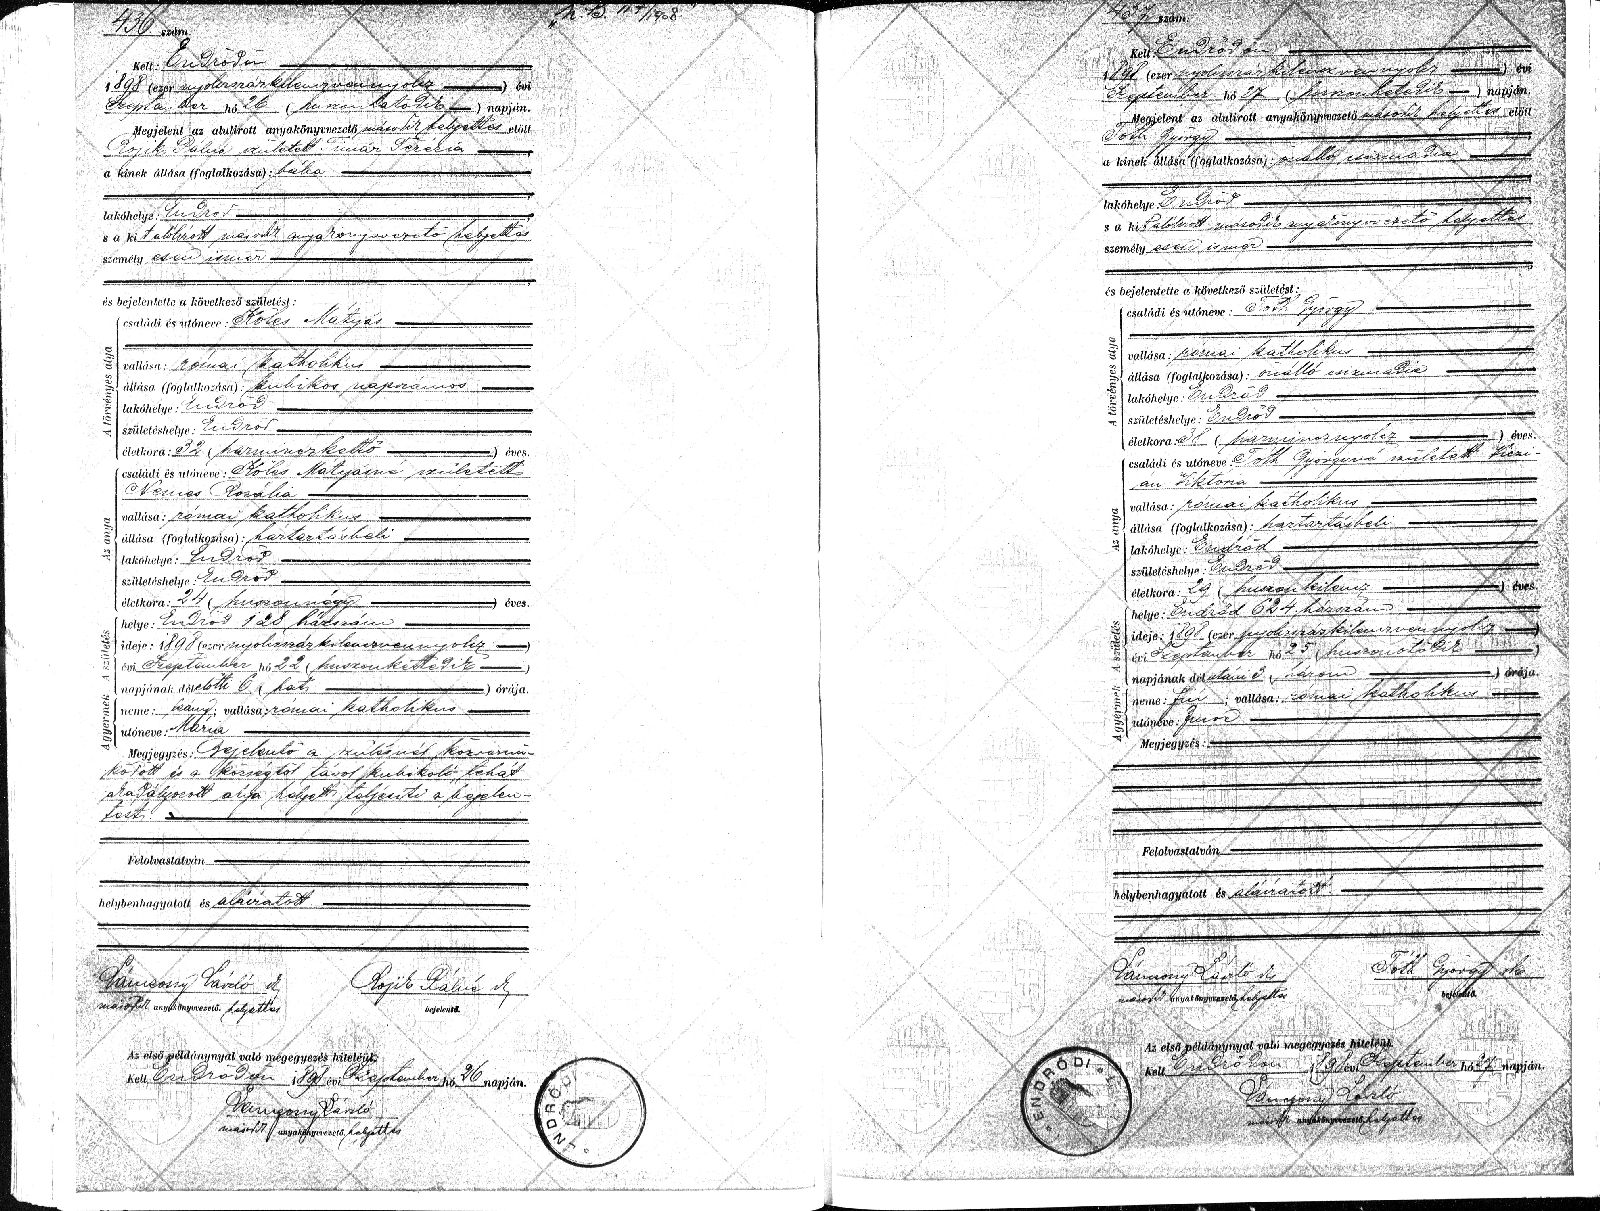 436 szám.
Kelt: Endrődön
1898 (ezer nyolczszázkilenczvennyolcz) évi
September hó 26 (huszonhatodik) napján.
Megjelent az alulirott anyakönyvezető másodk helyettes előtt
Rojik Pálné született Tímár Terézia
a kinek állása (foglalkozása): bába
lakóhelye: Endrőd
s a kit alólírott másodk anyakönyvvezető helyettes
személyesen ismer
és bejelentette a következő születést:
A törvényes atya
családi és utóneve: Kólcs Mátyás
vallása: római katholikus
állása (foglalkozása): kubikos napszámos
lakóhelye: Endrőd
születéshelye: Endrőd
életkora: 32 (harminczkettő) éves.
Az anya
családi és utóneve: Kólcs Mátyásné született
Nemes Rozália
vallása: római katholikus
állása (foglalkozása): háztartásbeli
lakóhelye: Endrőd
születéshelye: Endrőd
életkora: 24 (huszonnégy) éves.
A születés
helye: Endrőd 128 házszám
ideje: 1898 (ezer nyolczszázkilenczvennyolcz)
évi September hó 22 (huszonkettedik)
napjának délelőtti 6 (hat) órája.
A gyermek
neme: leány; vallása: római katholikus
utóneve: Mária
Megjegyzés: Bejelentő a szülésnél közremű-
ködött és a községtől távol kubikoló, tehát
akadályozott atya helyett teljesíti a bejelen-
tést.
Felolvastatván
helybenhagyatott és aláíratott
László sk Rojik Pálné sk
másodk anyakönyvvezető helyettes bejelentő.
Az első példánynyal való megegyezés hiteléül.
Kelt Endrődön 1898 évi September hó 26 napján.
László
másodk anyakönyvvezető helyettes
ENDRŐDI
437 szám.
Kelt: Endrődön
1898 (ezer nyolczszázkilenczvennyolcz) évi
September hó 27 (huszonhetedik) napján.
Megjelent az alulirott anyakönyvvezető másodk helyettes előtt
Tóth György
a kinek állása (foglalkozása): önálló csizmadia
lakóhelye: Endrőd
s a kit alólírott másodk anyakönyvvezető helyettes
személyesen ismer
és bejelentette a következő születést:
A törvényes atya
családi és utóneve: Tóth György
vallása: római katholikus
állása (foglalkozása): önálló csizmadia
lakóhelye: Endrőd
születéshelye: Endrőd
életkora: 38 (harmincznyolcz) éves.
Az anya
családi és utóneve: Tóth Györgyné született
Viktória
vallása: római katholikus
állása (foglalkozása): háztartásbeli
lakóhelye: Endrőd
születéshelye: Endrőd
életkora: 29 (huszonkilencz) éves.
A születés
helye: Endrőd 624 házszám
ideje: 1898 (ezer nyolczszázkilenczvennyolcz)
évi September hó 25 (huszonötödik)
napjának délutáni 3 (három) órája.
A gyermek
neme: fiu; vallása: római katholikus
utóneve:
Megjegyzés:
Felolvastatván
helybenhagyatott és aláíratott
László sk Tóth György sk
másodk anyakönyvvezető helyettes bejelentő.
Az első példánynyal való megegyezés hiteléül.
Kelt Endrődön 1898 évi September hó 27 napján.
László
másodk anyakönyvvezető helyettes
ENDRŐDI